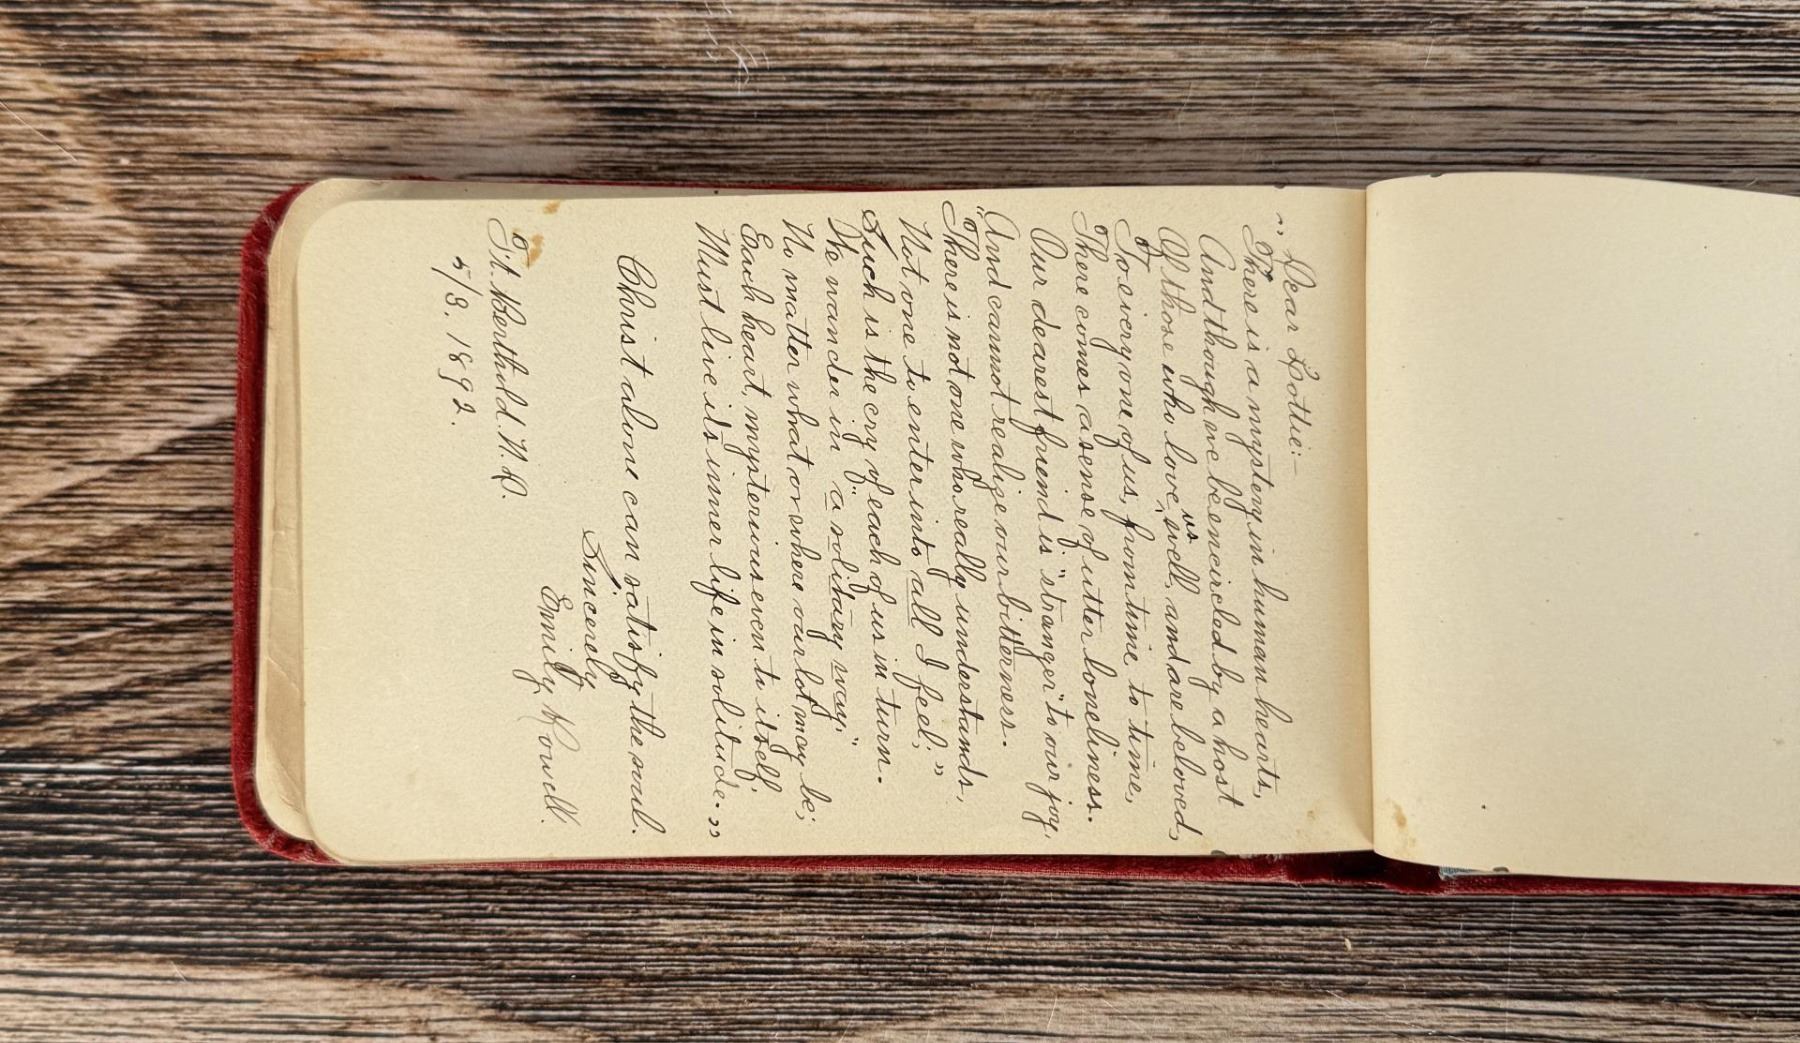 "Dear Lottie:-
There is a mystery in human hearts,
And though we be encircled by a host
Of those who love us well, and are beloved,
To every one of us, from time to time,
There comes a sense of utter loneliness.
Our dearest friend is "stranger" to our joy,
And cannot realize our bitterness.
"There is not one who really understands,
Not one to enter into all I feel;"
Such is the cry of each of us in turn.
We wander in "a solitary way,"
No matter what or where our lot may be;
Each heart, mysterious even to itself,
Must live its inner life in solitude."
Christ alone can satisfy the soul.
Sincerely
Emily
Ft. Berthold. N.D.
5/8. 1892.